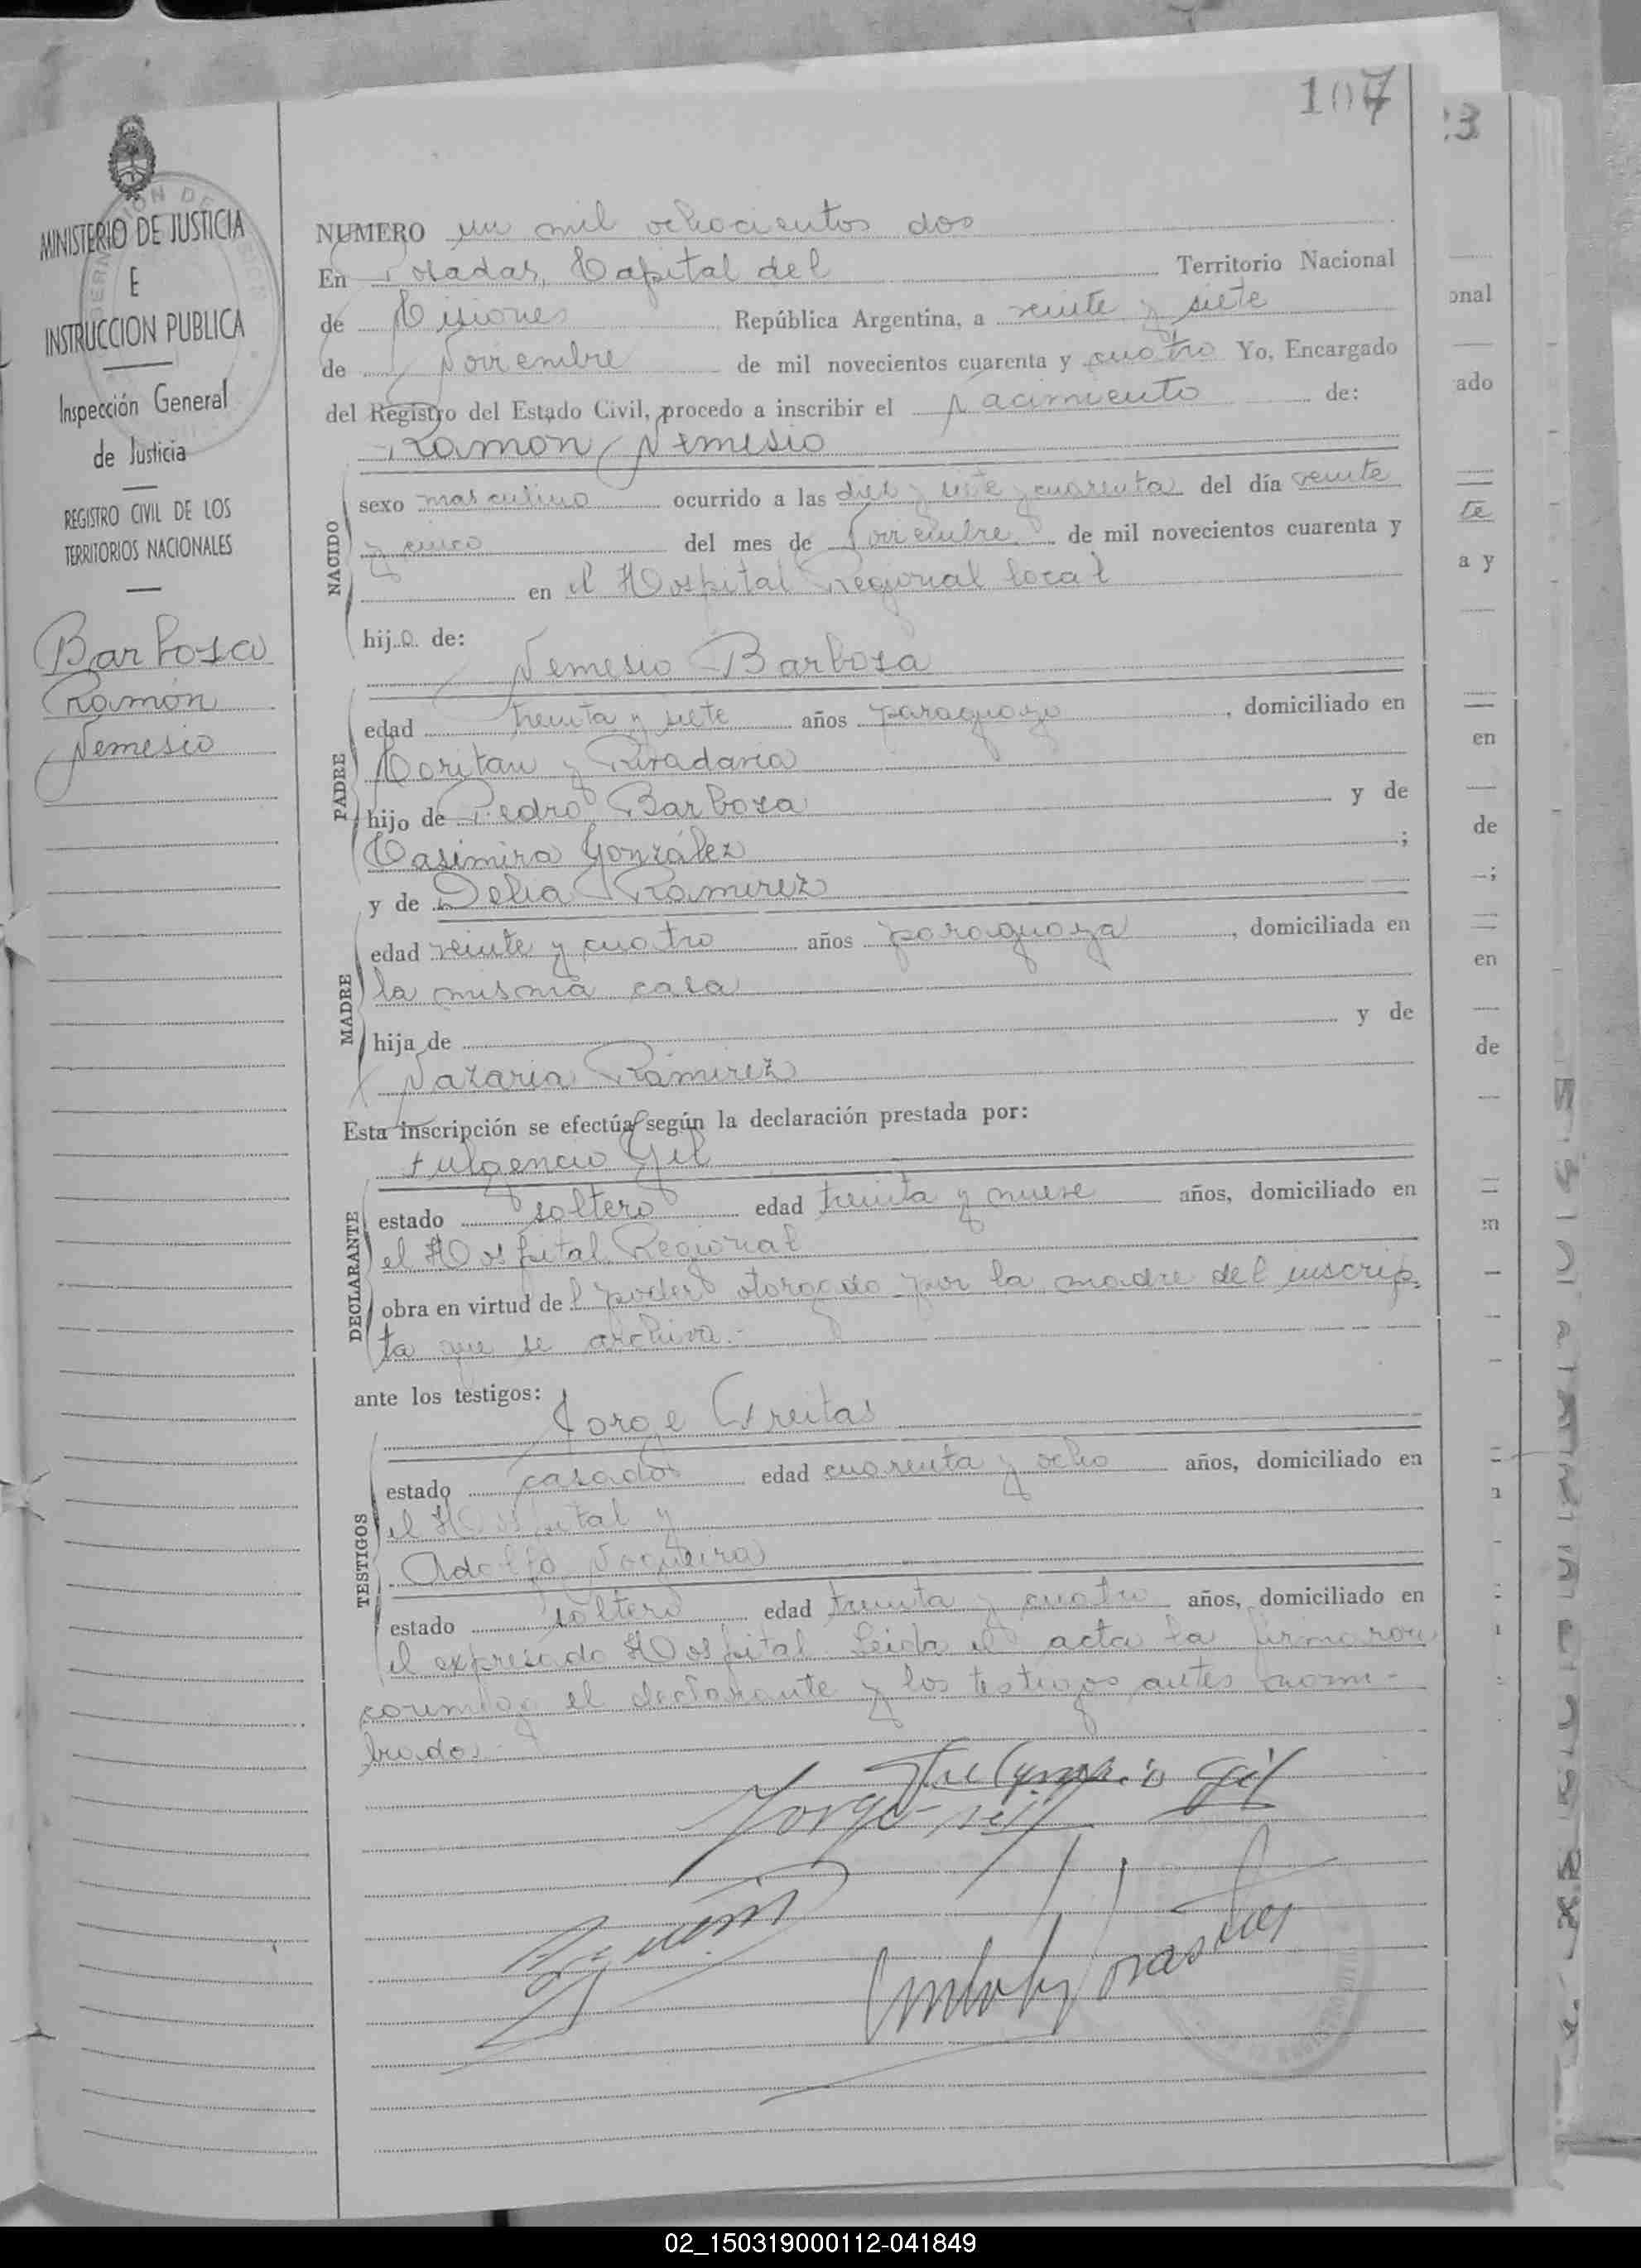 107
MINISTERIO DE JUSTICIA
E
INSTRUCCION PUBLICA
Inspección General
de Justicia
REGISTRO CIVIL DE LOS
TERRITORIOS NACIONALES
Barbosa
Ramón
Nemesio
NUMERO un mil ochocientos dos
En Posadas, Capital del Territorio Nacional
de Misiones República Argentina, a veinte y siete
de Noviembre de mil novecientos cuarenta y cuatro Yo, Encargado
del Registro del Estado Civil, procedo a inscribir el Nacimiento de:
Ramón Nemesio
NACIDO
sexo masculino ocurrido a las diez y siete y cuarenta del día veinte
y cinco del mes de Noviembre de mil novecientos cuarenta y
en el Hospital Regional local
hijo de:
Nemesio Barbosa
PADRE
edad treinta y siete años paraguayo, domiciliado en
y Rivadavia
hijo de Pedro Barboza y de
Casimira González;
y de Delia Ramirez
MADRE
edad veinte y cuatro años paraguaya, domiciliada en
la misma casa
hija de y de
Nazaria Ramirez
Esta inscripción se efectúa según la declaración prestada por:
Fulgencio Gil
DECLARANTE
estado soltero edad treinta y nueve años, domiciliado en
el Hospital Regional
obra en virtud del poder otorgado por la madre del inscrip
to que se archiva.-
ante los testigos:
Jorge Freitas
TESTIGOS
estado casado edad cuarenta y ocho años, domiciliado en
el Hospital y
Adolfo Nogueira
estado soltero edad treinta y cuatro años, domiciliado en
el expresado Hospital. Leida el acta la firmaron
conmigo el declarante y los testigos antes nom-
brados.-
Fulgencio Gil
Jorge
23
onal
ado
te
a y
en
de
en
de
02_150319000112-041849